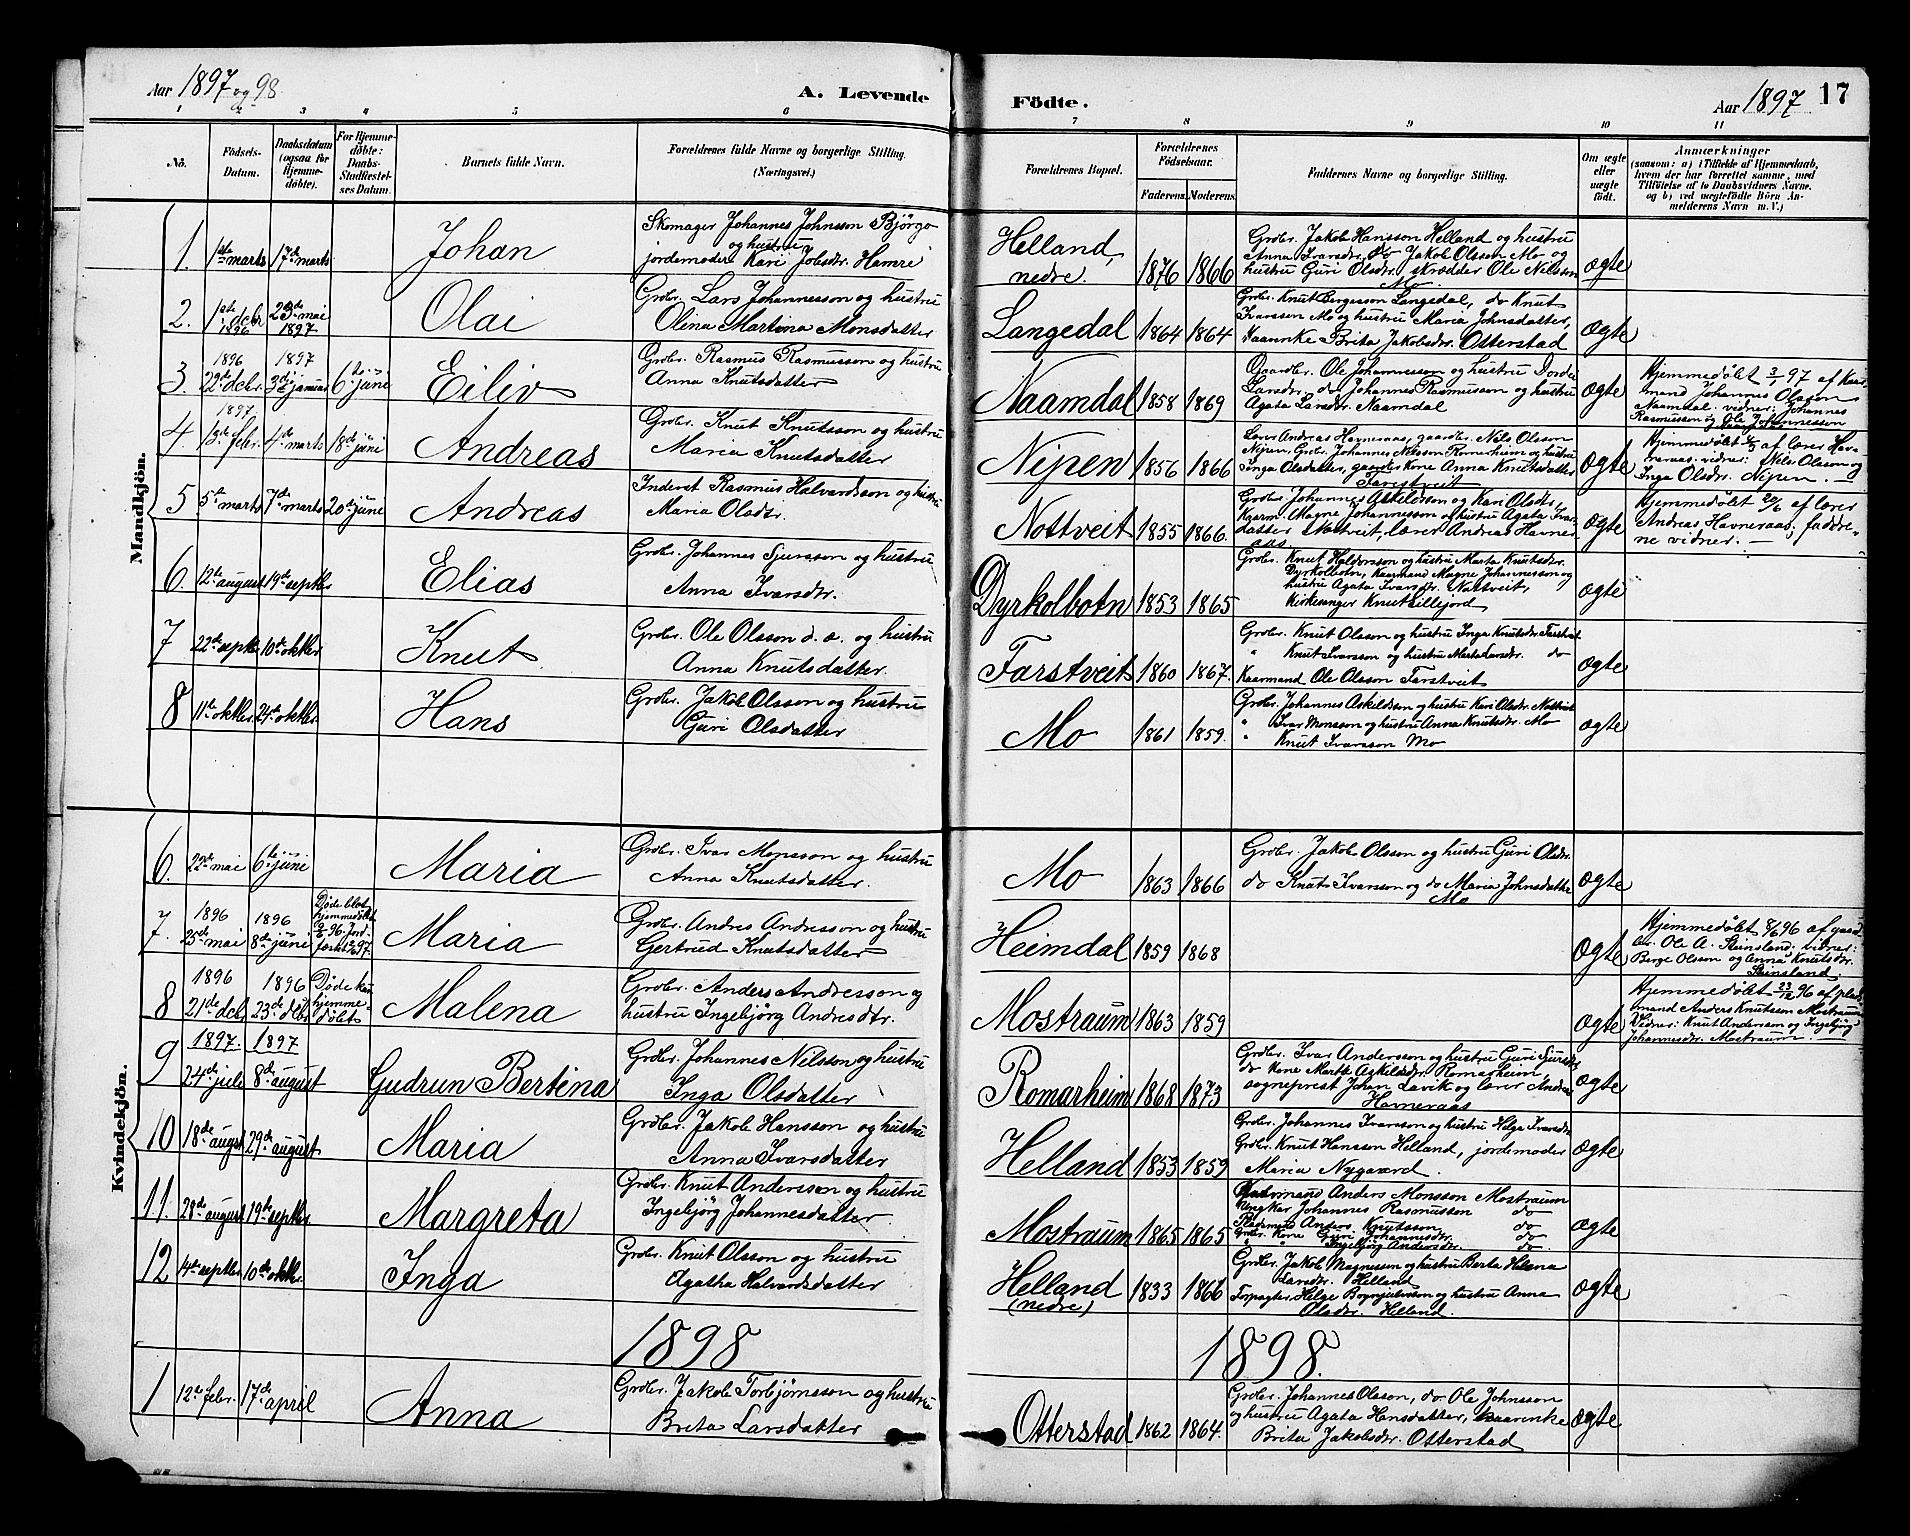 Aar 1897 og 98.
A. Levende
Födte.
Aar 1897
17
1 2 3 4 5 6
7 8 9 10 11
No.
Födsels-
Datum.
Daabsdatum
(ogsaa for
Hjemme-
döbte).
For Hjemme-
döbte:
Daabs-
Stadfæstel-
ses Datum.
Barnets fulde Navn.
Forældrenes fulde Navne og borgerlige Stilling.
(Næringsvei.)
Forældrenes Bopæl.
Forældrenes
Födselsaar.
Faderens.
Moderens.
Faddernes Navne og borgerlige Stilling.
Om ægte
eller
uægte
födt.
Anmærkninger
(saasom: a) i Tilfælde af Hjemmedaab,
hvem der har forrettet samme, med
Tilföielse af to Daabsvidners Navne.
og b) ved uægtefödte Börn An-
melderens Navn m. V.)
Mandkjön.
1. 1ste marts 17de marts
Johan
Skomager Johannes Johnsson Bjørgo
og hustru
jordemoder Kari Jobsdtr. Hamre
Helland,
nedre.
1876 1866
Grdbr. Jakob Hansson Helland og hustru
Anna Ivarsdtr. do Jakob Olsson Mo og
hustru Guri Olsdtr. skrædder Ole Nilsson
Mo
ægte
2. 1ste debr 1896 23de mai 1897
Olai
Grdbr. Lars Johannesson og hustru
Olina Martina Monsdatter
Langedal 1864 1864
Grdbr. Knut Bergesson Langedal, do Knut
Ivarsson Mo og hustru Maria Johnsdatter,
Kaarinke Brita Jakobsdtr. Otterstad
ægte
3. 1896 22de dcbr. 1897 3de januar 6te juni
Eiliv
Grdbr. Rasmus Rasmusson og hustru
Anna Knutsdatter
Naamdal 1858 1869
Gaardbr. Ole Johannesson og hustru Dordei
Larsdtr. do Johannes Rasmusson og hustru
Agata Larsdtr. Naamdal
ægte
Hjemmedøbt 3/1 97 af Kaar-
mand Johannes Olsson
Naamdal. vidner: Johannes
Rasmusson og Ole Johannesson
4 1897 13de febr. 4de marts 18de juni
Andreas
Grdbr. Knut Knutsson og hustru
Maria Knutsdatter
Nipen 1856 1866
Lærer Andreas Havneraas, gaardbr. Nils Olsson
Nipen, Grdbr. Johannes Nilsson Romarheim og hustru
Inga Olsdatter, gaardbr. Kone Anna Knutsdatter
Farstveit
ægte
Hjemmedøbt 4/3 af lærer Hav-
neraas. vidner: Nils Olsson og
Inga Olsdtr. Nipen. —
5 5te marts 7de marts 20de juni
Andreas
Inderst Rasmus Halvardsson og hustru
Maria Olsdtr.
Nottveit 1855 1866.
Grdbr. Johannes Askildsson og Kari Olsdtr.,
Kaarm. Magne Johannesson og hustru Agata Ivars-
datter Nottveit, lærer Andreas Havner-
aas
ægte
Hjemmedøbt 20/6 af lærer
Andreas Havneraas; faddre-
ne vidner. —
6. 12te august 19de septbr
Elias
Grdbr. Johannes Sjursson og hustru
Anna Ivarsdtr.
Dyrkolbotn 1853 1865
Grdbr. Knut Haldorsson og hustru Marta Knutsdtr.
Dyrkolbotn, Kaarmand Magne Johannesson og
hustru Agata Ivarsdtr. Nottveit,
Kirkesanger Knut Lillejord
ægte
7 22de septbr 10de oktbr.
Knut
Grdbr. Ole Olsson d. æ. og hustru
Anna Knutsdatter.
Farstveit 1860 1867.
Grdbr. Knut Olsson og hustru Inga Knutsdtr. Farstveit
" Knut Ivarsson og hustru Marta Larsdtr. do
Kaarmand Ole Olsson Farstveit
ægte
8 11te oktbr. 24de oktbr.
Hans
Grdbr. Jakob Olsson og hustru
Guri Olsdatter
Mo 1861 1859.
Grdbr. Johannes Askildsson og hustru Kari Olsdtr. Nottveit
" Ivar Monsson og hustru Anna Knutsdtr. Mo
" Knut Ivarsson Mo
ægte
Kvindekjön.
6. 22de mai 6te juni
Maria
Grdbr. Ivar Monsson og hustru
Anna Knutsdatter.
Mo 1863 1866
Grdbr. Jakob Olsson og hustru Guri Olsdtr.
do Knut Ivarsson og do Maria Johnsdatter
Mo
ægte
7. 1896 25de mai 1896 8de juni
Døde blot
hjemmedøbt
96. Jord-
fæstet 97.
Maria
Grdbr. Andres Andresson og hustru
Gertrud Knutsdatter
Heimdal 1859 1868
ægte
Hjemmedøbt 8/6 96 af gaard-
br. Ole A. Steinsland: vidner:
Berge Olsson og Anna Knutsdtr.
Steinsland.
8 1896 21de dcb. 1896 23de dcbr
Døde kun
hjemme-
døbt
Malena
Grdbr. Anders Andresson og
hustru Ingebjörg Andresdtr.
Mostraum 1863 1859
ægte
Hjemmedøbt 23/12 96 af plads-
mand Anders Knutsson Mostraum
Vidner: Knut Andersson og Ingebjörg
Johannesdtr. Mostraum. —
9 1897. 24de juli 1897 8de august
Gudrun Bertina
Grdbr. Johannes Nilsson og hustru
Inga Olsdatter
Romarheim 1868 1873
Grdbr. Ivar Andersson og hustru Guri Sjursdtr,
do kone Marta Askildsdtr. Romarheim,
sogneprest Johan Lavik og lærer Andreas
Havneraas
ægte
10 18de august 29de august
Maria
Grdbr. Jakob Hansson og hustru
Anna Ivarsdatter
Helland 1853 1859
Grdbr. Johannes Ivarsson og hustru Helga Ivarsdtr
Grdbr. Knut Hansson Helland, jordemoder
Maria Nygaard.
ægte
11. 28de august 19de septbr.
Margreta
Grdbr. Knut Andersson og hustru
Ingebjörg Johannesdatter.
Mostraum 1865 1865
Kaarmand Anders Monsson Mostraum
Ungkar Johannes Rasmusson do
Pladsmand Anders Knutsson do
Grdbr. Kone Guri Johannesdtr. do
" " Ingebjörg Andersdtr. do
ægte
12 4de septbr. 10de oktbr.
Inga
Grdbr. Knut Olsson og hustru
Agatha Halvardsdatter
Helland
(nedre)
1833 1866
Grdbr. Jakob Magnesson og hustru Berta Helena
Larsdtr. Helland
Forpagter Helge Brynjulvsson og hustru Anna
Olsdtr. Helland.
ægte
1898
1898.
1 12te febr. 17de april
Anna
Grdbr. Jakob Torbjørnsson og hustru
Brita Larsdatter
Otterstad 1862 1864.
Grdbr. Johannes Olsson, do Ole Johnsson
og hustru Agata Hansdatter, kaarenke
Brita Jakobsdtr. Otterstad
ægte